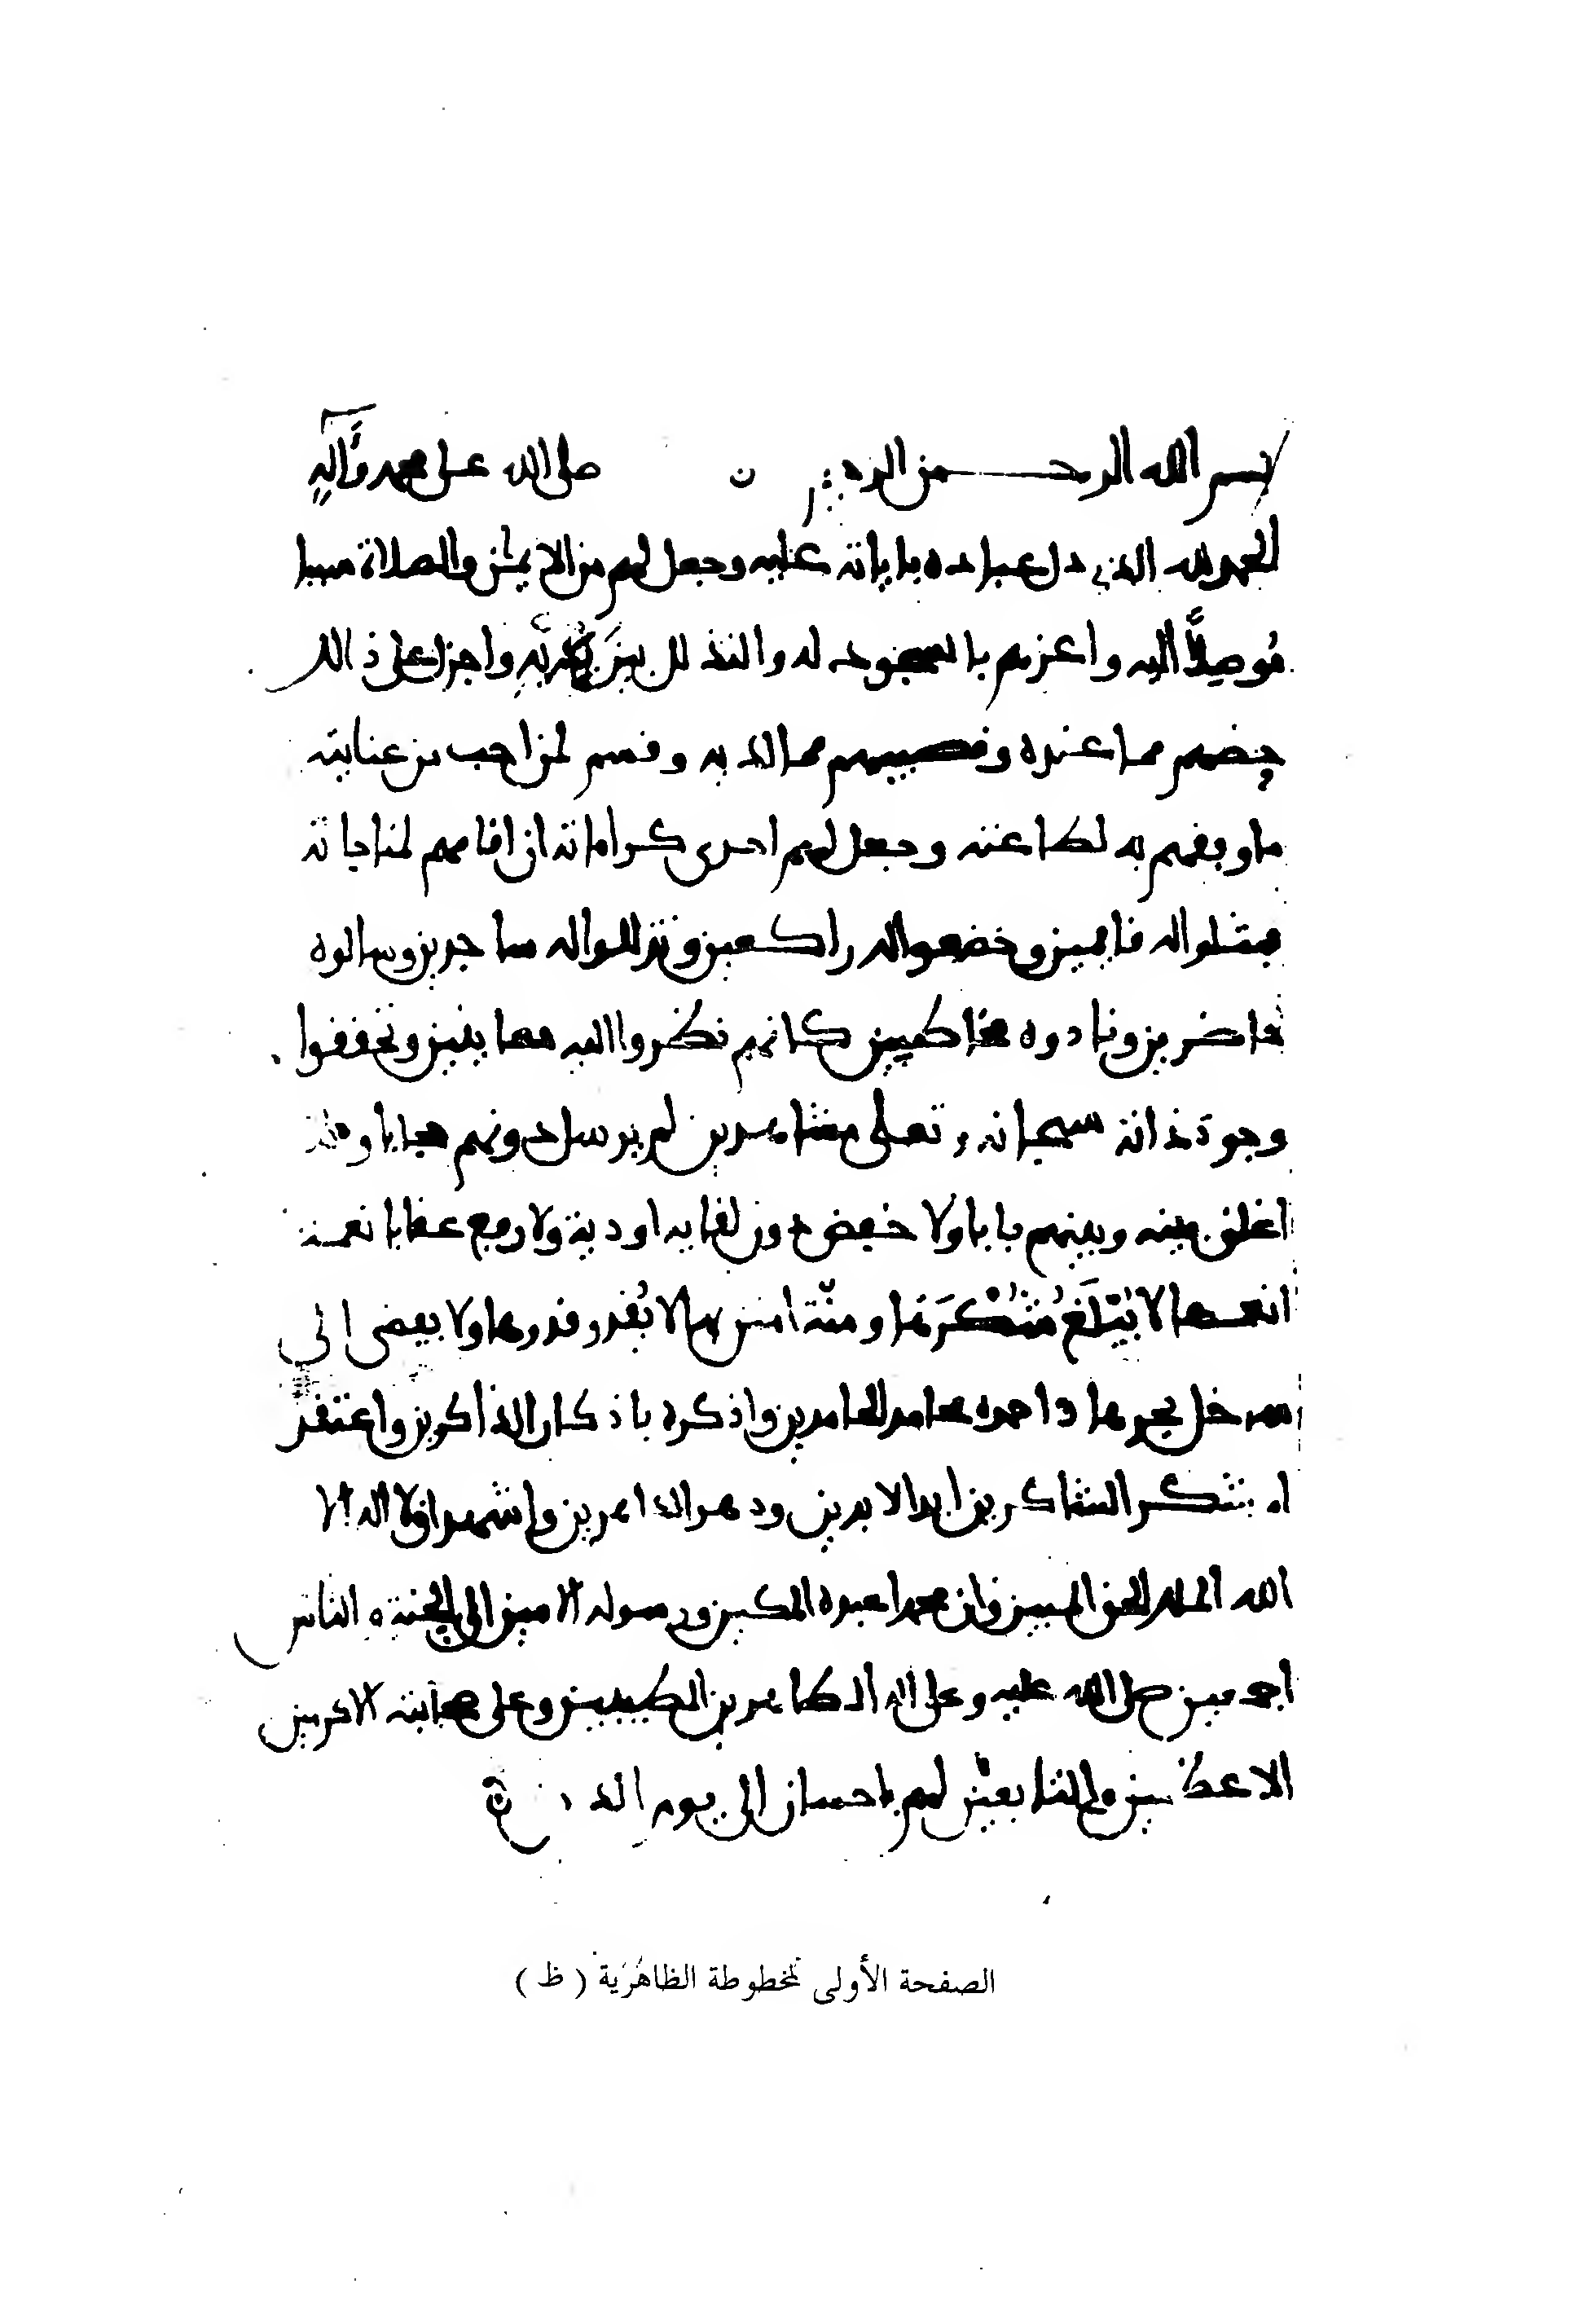 بسم الله الرحمن الرحيم صلى الله على محمد وآله
الحمد لله الذي دل عباده بآياته عليه وجعل لهم من الإيمان والصلاة سببا
مُوصِلاً اليه واعزهم بالسجود له والتذلل بين واجزل على ذلك
حضهم مما عنده ونصيبهم مما لديه وقسم لمن احب من عنايته
ما وفقهم به لطاعته وجعل لهم احدى كراماته ان اقامهم لمناجاته
فمثلوا له قايمين وخضعوا له راكعين وتذللوا له ساجدين وسالوه
حاضرين ونادوه مخاطبين كانهم نظروا اليه معاينين وتحققوا
وجود ذاته سبحانه وتعلى مشاهدين لم يرسل دونهم حجابا ولا
اغلق بينه وبينهم بابا ولا خفض دون لقايه اودية ولا رفع عقابا نعمة
انعمها لا يُبْلَغُ شُكْرُهَا ومنّة امتن بها لا يُقدر قدرها ولا يفضى الى
بحرها واحمده محامد الحامدين واذكره باذكار الذاكرين واعتقد
له شكر الشاكرين ابد الابدين ودهر الداهرين واشهد ان لا اله الا
الله الملك الحق المبين وان محمدا عبده المكين ورسوله الامين الى الجنة والناس
اجمعين صلى الله عليه وعلى اله الطاهرين الطيبين وعلى صحابته الاكرمين
الاعظمين والتابعين لهم باحسان الى يوم الدين
الصفحة الأولى لمخطوطة الظاهرية ( ظ )